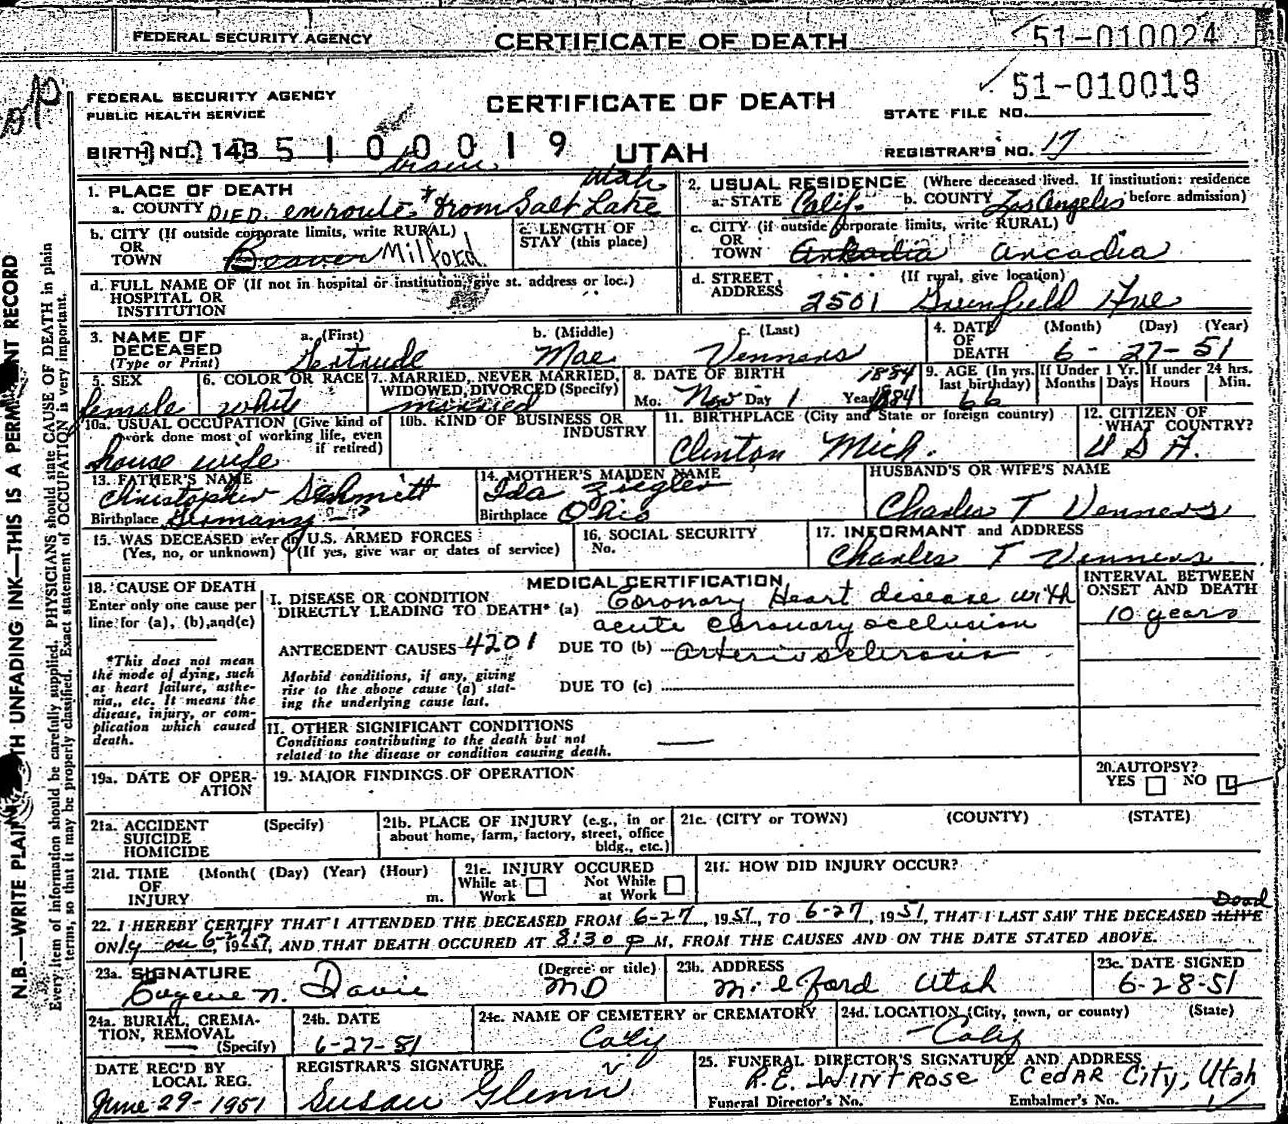 FEDERAL SECURITY AGENCY CERTIFICATE OF DEATH 51-010024
FEDERAL SECURITY AGENCY
PUBLIC HEALTH SERVICE
CERTIFICATE OF DEATH
51-010019
STATE FILE NO.
BIRTH NO. 143 5 1 0 0 0 1 9 UTAH REGISTRAR'S NO. 17
train Utah
1. PLACE OF DEATH
a. COUNTY DIED enroute from Salt Lake
2. USUAL RESIDENCE (Where deceased lived. If institution: residence before admission)
a. STATE Calif. b. COUNTY Los Angeles
b. CITY (If outside corporate limits, write RURAL) OR TOWN Beaver Milford
c. LENGTH OF STAY (this place)
c. CITY (if outside corporate limits, write RURAL) OR TOWN Arkadia Arcadia
d. FULL NAME OF (If not in hospital or institution, give st. address or loc.) HOSPITAL OR INSTITUTION
d. STREET ADDRESS (If rural, give location) 2501 Greenfield Ave
3. NAME OF DECEASED (Type or Print)
a. (First) Gertrude b. (Middle) Mae c. (Last) Venners
4. DATE OF DEATH (Month) (Day) (Year) 6-27-51
5. SEX female
6. COLOR OR RACE white
7. MARRIED, NEVER MARRIED, WIDOWED, DIVORCED (Specify) married
8. DATE OF BIRTH 1884
Mo. Nov Day 1 Year 1884
9. AGE (In yrs. last birthday) 66
If Under 1 Yr. Months Days
If under 24 hrs. Hours Min.
10a. USUAL OCCUPATION (Give kind of work done most of working life, even if retired) house wife
10b. KIND OF BUSINESS OR INDUSTRY
11. BIRTHPLACE (City and State or foreign country) Clinton Mich.
12. CITIZEN OF WHAT COUNTRY? U S A.
13. FATHER'S NAME Christopher Schmitt
Birthplace Germany - ?
14. MOTHER'S MAIDEN NAME Ida Ziegler
Birthplace Ohio
HUSBAND'S OR WIFE'S NAME Charles T Venners
15. WAS DECEASED ever in U.S. ARMED FORCES
(Yes, no, or unknown) (If yes, give war or dates of service)
16. SOCIAL SECURITY No.
17. INFORMANT and ADDRESS Charles T Venners
18. CAUSE OF DEATH
Enter only one cause per line for (a), (b), and (c)
*This does not mean the mode of dying, such as heart failure, asthenia, etc. It means the disease, injury, or complication which caused death.
MEDICAL CERTIFICATION
I. DISEASE OR CONDITION DIRECTLY LEADING TO DEATH* (a) Coronary Heart disease with
acute coronary occlusion
ANTECEDENT CAUSES 4201 DUE TO (b) arteriosclerosis
Morbid conditions, if any, giving rise to the above cause (a) stating the underlying cause last.
DUE TO (c)
INTERVAL BETWEEN ONSET AND DEATH
10 years
II. OTHER SIGNIFICANT CONDITIONS
Conditions contributing to the death but not related to the disease or condition causing death.
19a. DATE OF OPERATION
19. MAJOR FINDINGS OF OPERATION
20. AUTOPSY?
YES NO
21a. ACCIDENT SUICIDE HOMICIDE (Specify)
21b. PLACE OF INJURY (e.g., in or about home, farm, factory, street, office bldg., etc.)
21c. (CITY or TOWN) (COUNTY) (STATE)
21d. TIME OF INJURY (Month( (Day) (Year) (Hour) m.
21e. INJURY OCCURED
While at Work Not While at Work
21f. HOW DID INJURY OCCUR?
Dead
22. I HEREBY CERTIFY THAT I ATTENDED THE DECEASED FROM 6-27, 1951, TO 6-27, 1951, THAT I LAST SAW THE DECEASED ALIVE
ONly on 6-27, 1951, AND THAT DEATH OCCURED AT 8:30 p M, FROM THE CAUSES AND ON THE DATE STATED ABOVE.
23a. SIGNATURE (Degree or title)
Eugene N. Davie MD
23b. ADDRESS Milford Utah
23c. DATE SIGNED 6-28-51
24a. BURIAL, CREMATION, REMOVAL (Specify)
24b. DATE 6-27-51
24c. NAME OF CEMETERY or CREMATORY Calif
24d. LOCATION (City, town, or county) (State) Calif
DATE REC'D BY LOCAL REG. June 29-1951
REGISTRAR'S SIGNATURE Susan Glenn
25. FUNERAL DIRECTOR'S SIGNATURE AND ADDRESS
R.E. WINTROSE CEDAR City, Utah
Funeral Director's No. Embalmer's No.
N.B.—WRITE PLAIN UNFADING INK—THIS IS A PERMANENT RECORD
Every item of information should be carefully supplied. PHYSICIANS should state CAUSE OF DEATH in plain
terms, so that it may be properly classified. Exact statement of OCCUPATION is very important.